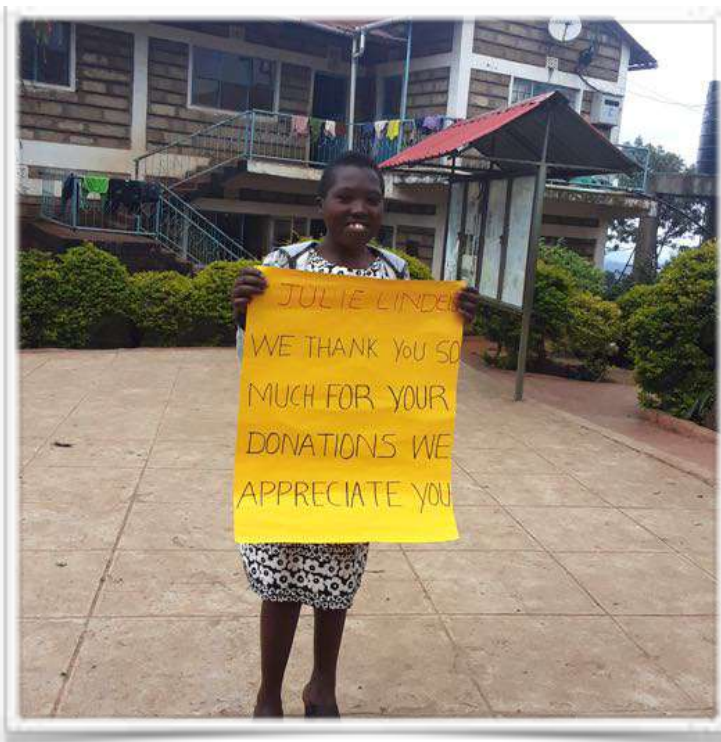 JULIE LINDER
WE THANK YOU SO
MUCH FOR YOUR
DONATIONS WE
APPRECIATE YOU